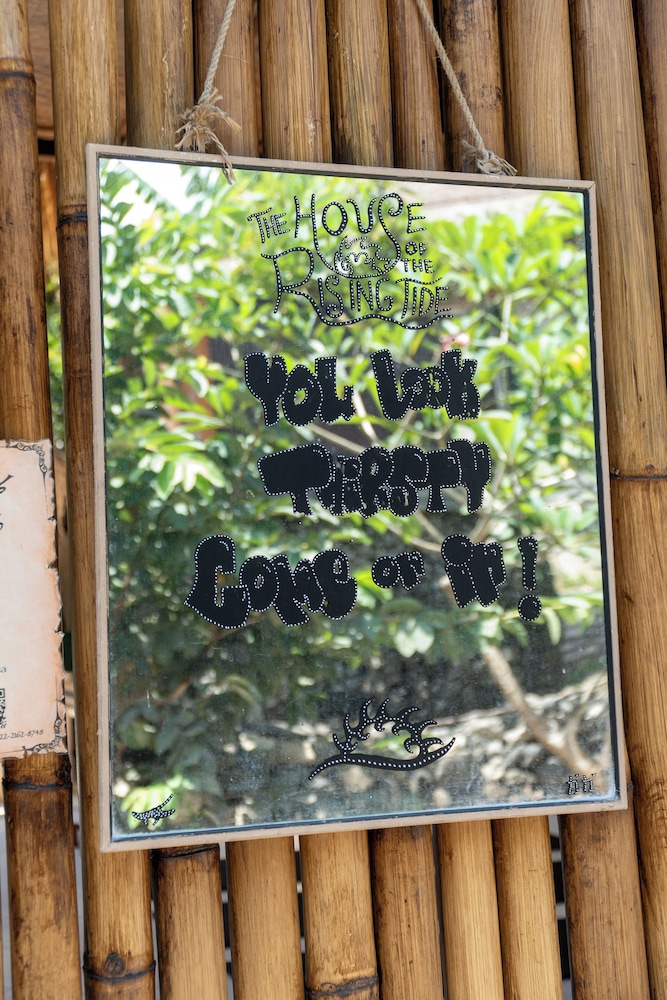 THE HOUSE
OF
THE
RISING TIDE
YOU LOOK
THIRSTY
COME ON IN!
22-2162-8748